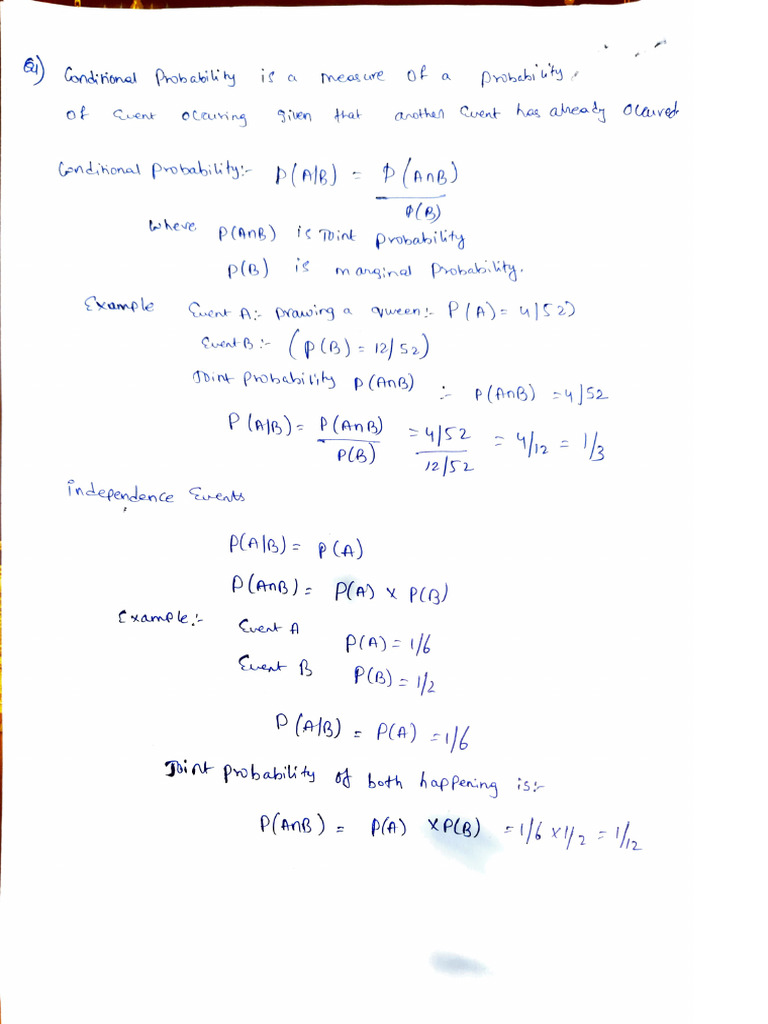 Q4) Conditional Probability is a measure of a probability,
of Event occuring given that another Event has already occured
Conditional Probability:- P(A|B) = P(A∩B) / P(B)
where P(A∩B) is Joint probability
P(B) is marginal Probability.
Example Event A:- Drawing a queen:- P(A) = 4/52)
Event B:- (P(B) = 12/52)
Joint Probability P(A∩B) :- P(A∩B) = 4/52
P(A|B) = P(A∩B) / P(B) = 4/52 / 12/52 = 4/12 = 1/3
independence Events
P(A|B) = P(A)
P(A∩B) = P(A) x P(B)
Example:- Event A P(A) = 1/6
Event B P(B) = 1/2
P(A|B) = P(A) = 1/6
Joint probability of both happening is:-
P(A∩B) = P(A) x P(B) = 1/6 x 1/2 = 1/12